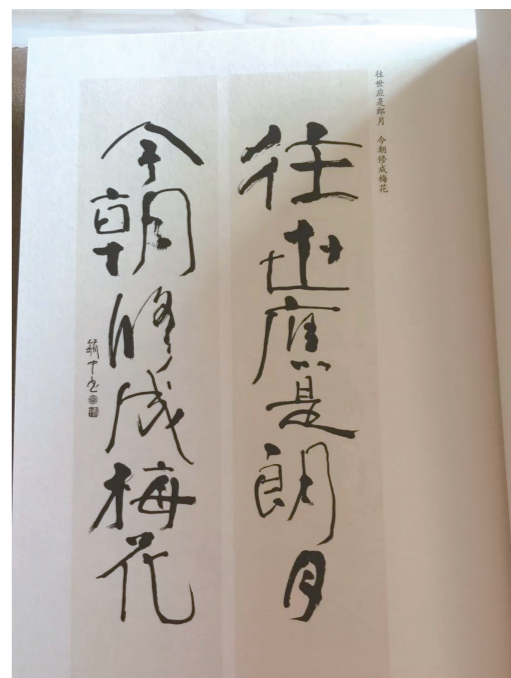 往世应是郎月 今朝修成梅花
往世應是朗月
今朝修成梅花